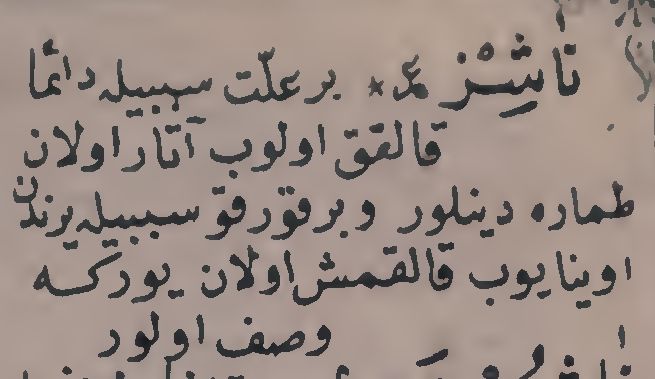 ناشِزْ عـ * بر علّت سببيله دائما
قالقق اولوب آتار اولان
طماره دينلور و بر قورقو سببيله يرندن
اوينايوب قالقمش اولان يوركه
وصف اولور